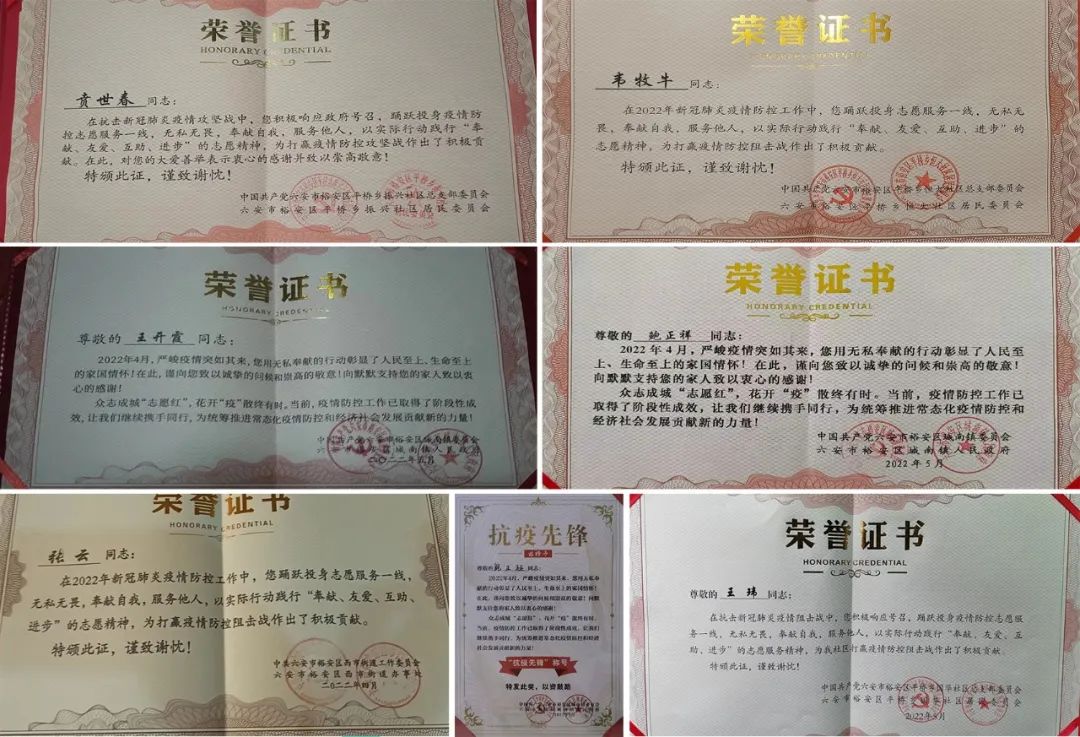 荣誉证书
HONORARY CREDENTIAL
贲世春 同志：
在抗击新冠肺炎疫情攻坚战中，您积极响应政府号召，踊跃投身疫情防
控志愿服务一线，无私无畏，奉献自我，服务他人，以实际行动践行“奉
献、友爱、互助、进步”的志愿精神，为打赢疫情防控攻坚战作出了积极贡
献。在此，对您的大爱善举表示衷心的感谢并致以崇高敬意！
特颁此证，谨致谢忱！
中国共产党六安市裕安区平桥乡振兴社区总支部委员会
六安市裕安区平桥乡振兴社区居民委员会
荣誉证书
HONORARY CREDENTIAL
韦牧牛 同志：
在2022年新冠肺炎疫情防控工作中，您踊跃投身志愿服务一线，无私无
畏，奉献自我，服务他人，以实际行动践行“奉献、友爱、互助、进步”的
志愿精神，为打赢疫情防控阻击战作出了积极贡献。
特颁此证，谨致谢忱！
中国共产党六安市裕安区平桥乡恒大社区总支部委员会
六安市裕安区平桥乡恒大社区居民委员会
荣誉证书
HONORARY CREDENTIAL
尊敬的 王开霞 同志：
2022年4月，严峻疫情突如其来，您用无私奉献的行动彰显了人民至上、生命至上
的家国情怀！在此，谨向您致以诚挚的问候和崇高的敬意！向默默支持您的家人致以衷
心的感谢！
众志成城“志愿红”，花开“疫”散终有时。当前，疫情防控工作已取得了阶段性成
效，让我们继续携手同行，为统筹推进常态化疫情防控和经济社会发展贡献新的力量！
中国共产党六安市裕安区城南镇委员会
六安市裕安区城南镇人民政府
二〇二二年五月
荣誉证书
HONORARY CREDENTIAL
尊敬的 鲍正祥 同志：
2022年4月，严峻疫情突如其来，您用无私奉献的行动彰显了人民至
上、生命至上的家国情怀！在此，谨向您致以诚挚的问候和崇高的敬意！
向默默支持您的家人致以衷心的感谢！
众志成城“志愿红”，花开“疫”散终有时。当前，疫情防控工作已
取得了阶段性成效，让我们继续携手同行，为统筹推进常态化疫情防控和
经济社会发展贡献新的力量！
中国共产党六安市裕安区城南镇委员会
六安市裕安区城南镇人民政府
2022年5月
荣誉证书
HONORARY CREDENTIAL
张云 同志：
在2022年新冠肺炎疫情防控工作中，您踊跃投身志愿服务一线，
无私无畏，奉献自我，服务他人，以实际行动践行“奉献、友爱、互助、
进步”的志愿精神，为打赢疫情防控阻击战作出了积极贡献。
特颁此证，谨致谢忱！
中共六安市裕安区西市街道工作委员会
六安市裕安区西市街道办事处
二〇二二年四月
抗疫先锋
尊敬的 同志：
2022年4月，严峻疫情突如其来，您用无私奉
献的行动彰显了人民至上、生命至上的家国情怀！
在此，谨向您致以诚挚的问候和崇高的敬意！向默
默支持您的家人致以衷心的感谢！
众志成城“志愿红”，花开“疫”散终有时。
当前，疫情防控工作已取得了阶段性成效，让我们
继续携手同行，为统筹推进常态化疫情防控和经济
社会发展贡献新的力量！
“抗疫先锋”称号
特发此奖，以资鼓励
荣誉证书
HONORARY CREDENTIAL
尊敬的 王玮 同志：
在抗击新冠肺炎疫情阻击战中，您积极响应号召，踊跃投身疫情防控志愿服
务一线，无私无畏，奉献自我，服务他人，以实际行动践行“奉献、友爱、互
助、进步”的志愿精神，为我社区打赢疫情防控阻击战作出了积极贡献。
特颁此证，谨致谢忱！
中国共产党六安市裕安区平桥乡国华社区总支部委员会
六安市裕安区平桥乡国华社区居民委员会
2022年5月